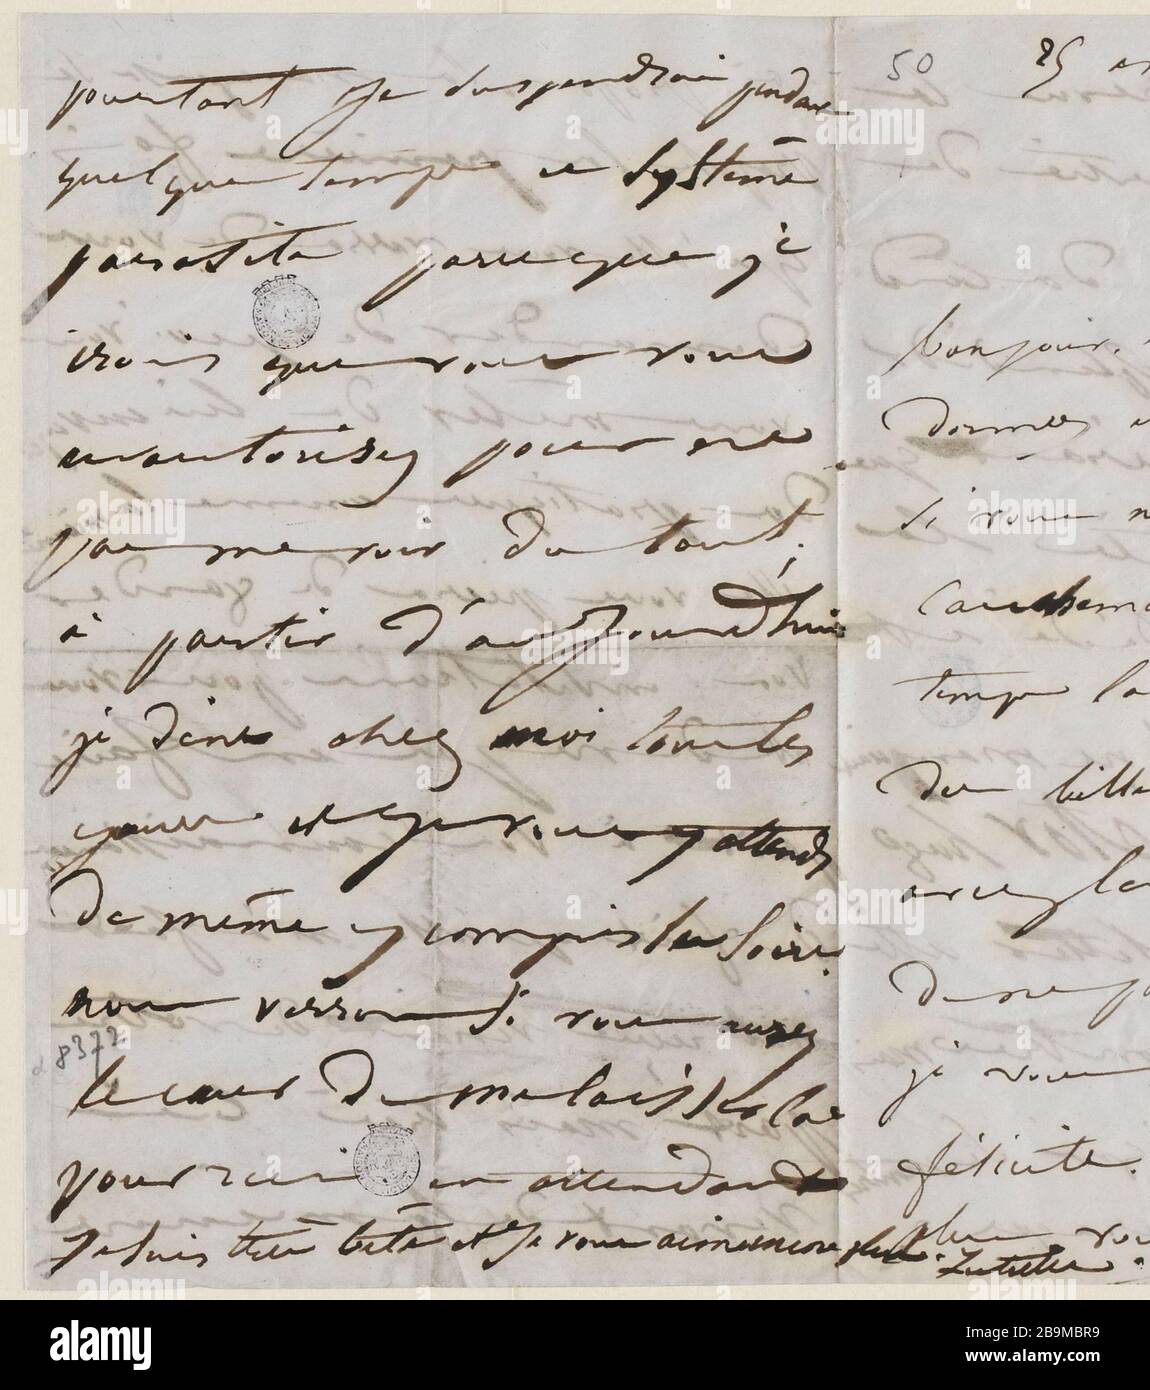 pourtant je suspendrai pendant
quelque temps ce système
parasite parceque je
crois que vous vous
autorisez pour ne
pas me voir du tout.
à partir d'aujourd'hui
je dine chez moi tous les
jours et je vous y attends
de même y compris les soirs.
nous verrons si vous aurez
le cœur de me laisser là
pour rien en attendant
je suis très bête et je vous aime encore plus.
α 8372
50
25
bonjour.
donnez
si vous
Cauchema
temps la
des bille
avec la
de ne
je vous
félicite.
plus vou
Juliette.
alamy
Image ID: 2B9MBR9
www.alamy.com